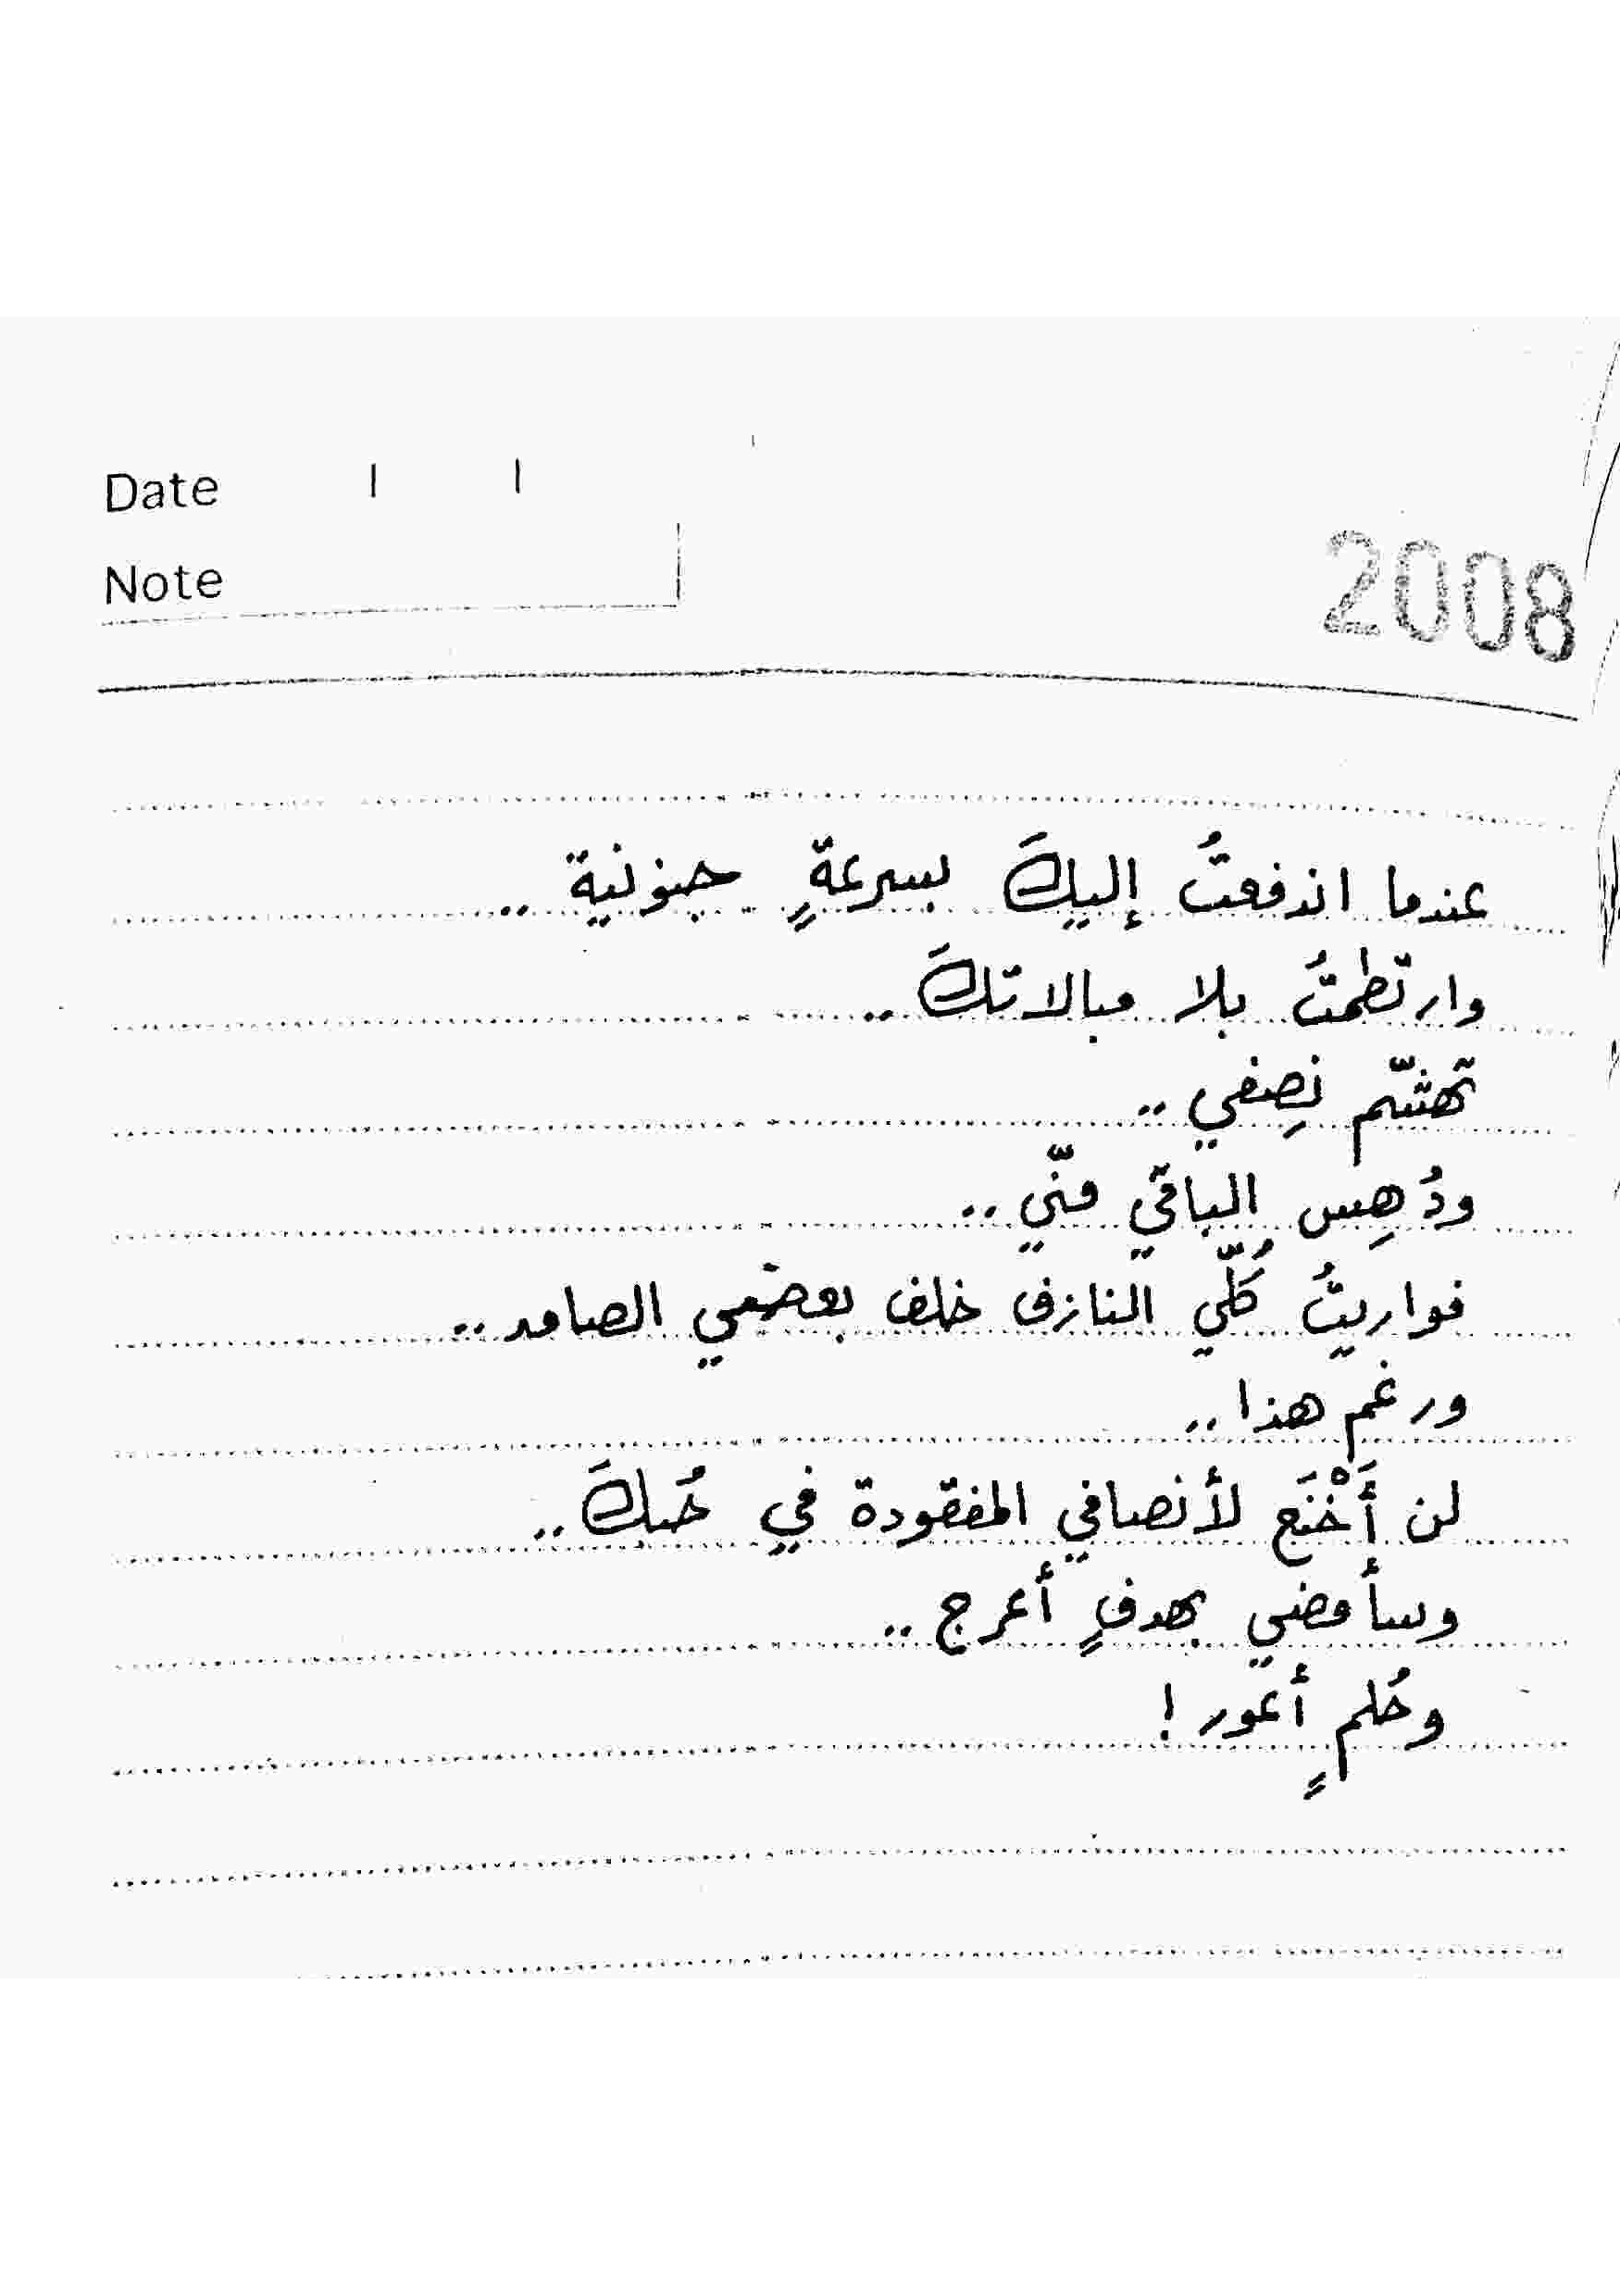 Date / /
Note
2008
عندما اندفعتُ إليكَ بسرعةٍ جنونية ..
وارتطمتُ بلا مبالاتكَ ..
تهشّم نِصفي ..
ودُهِس الباقي منّي ..
فواريتُ كُلّي النازف خلف بعضي الصامد ..
ورغم هذا ..
لن أَخْنَع لأنصافي المفقودة في حُبكَ ..
وسأمضي بهدفٍ أعرج ..
وحُلمٍ أعور !